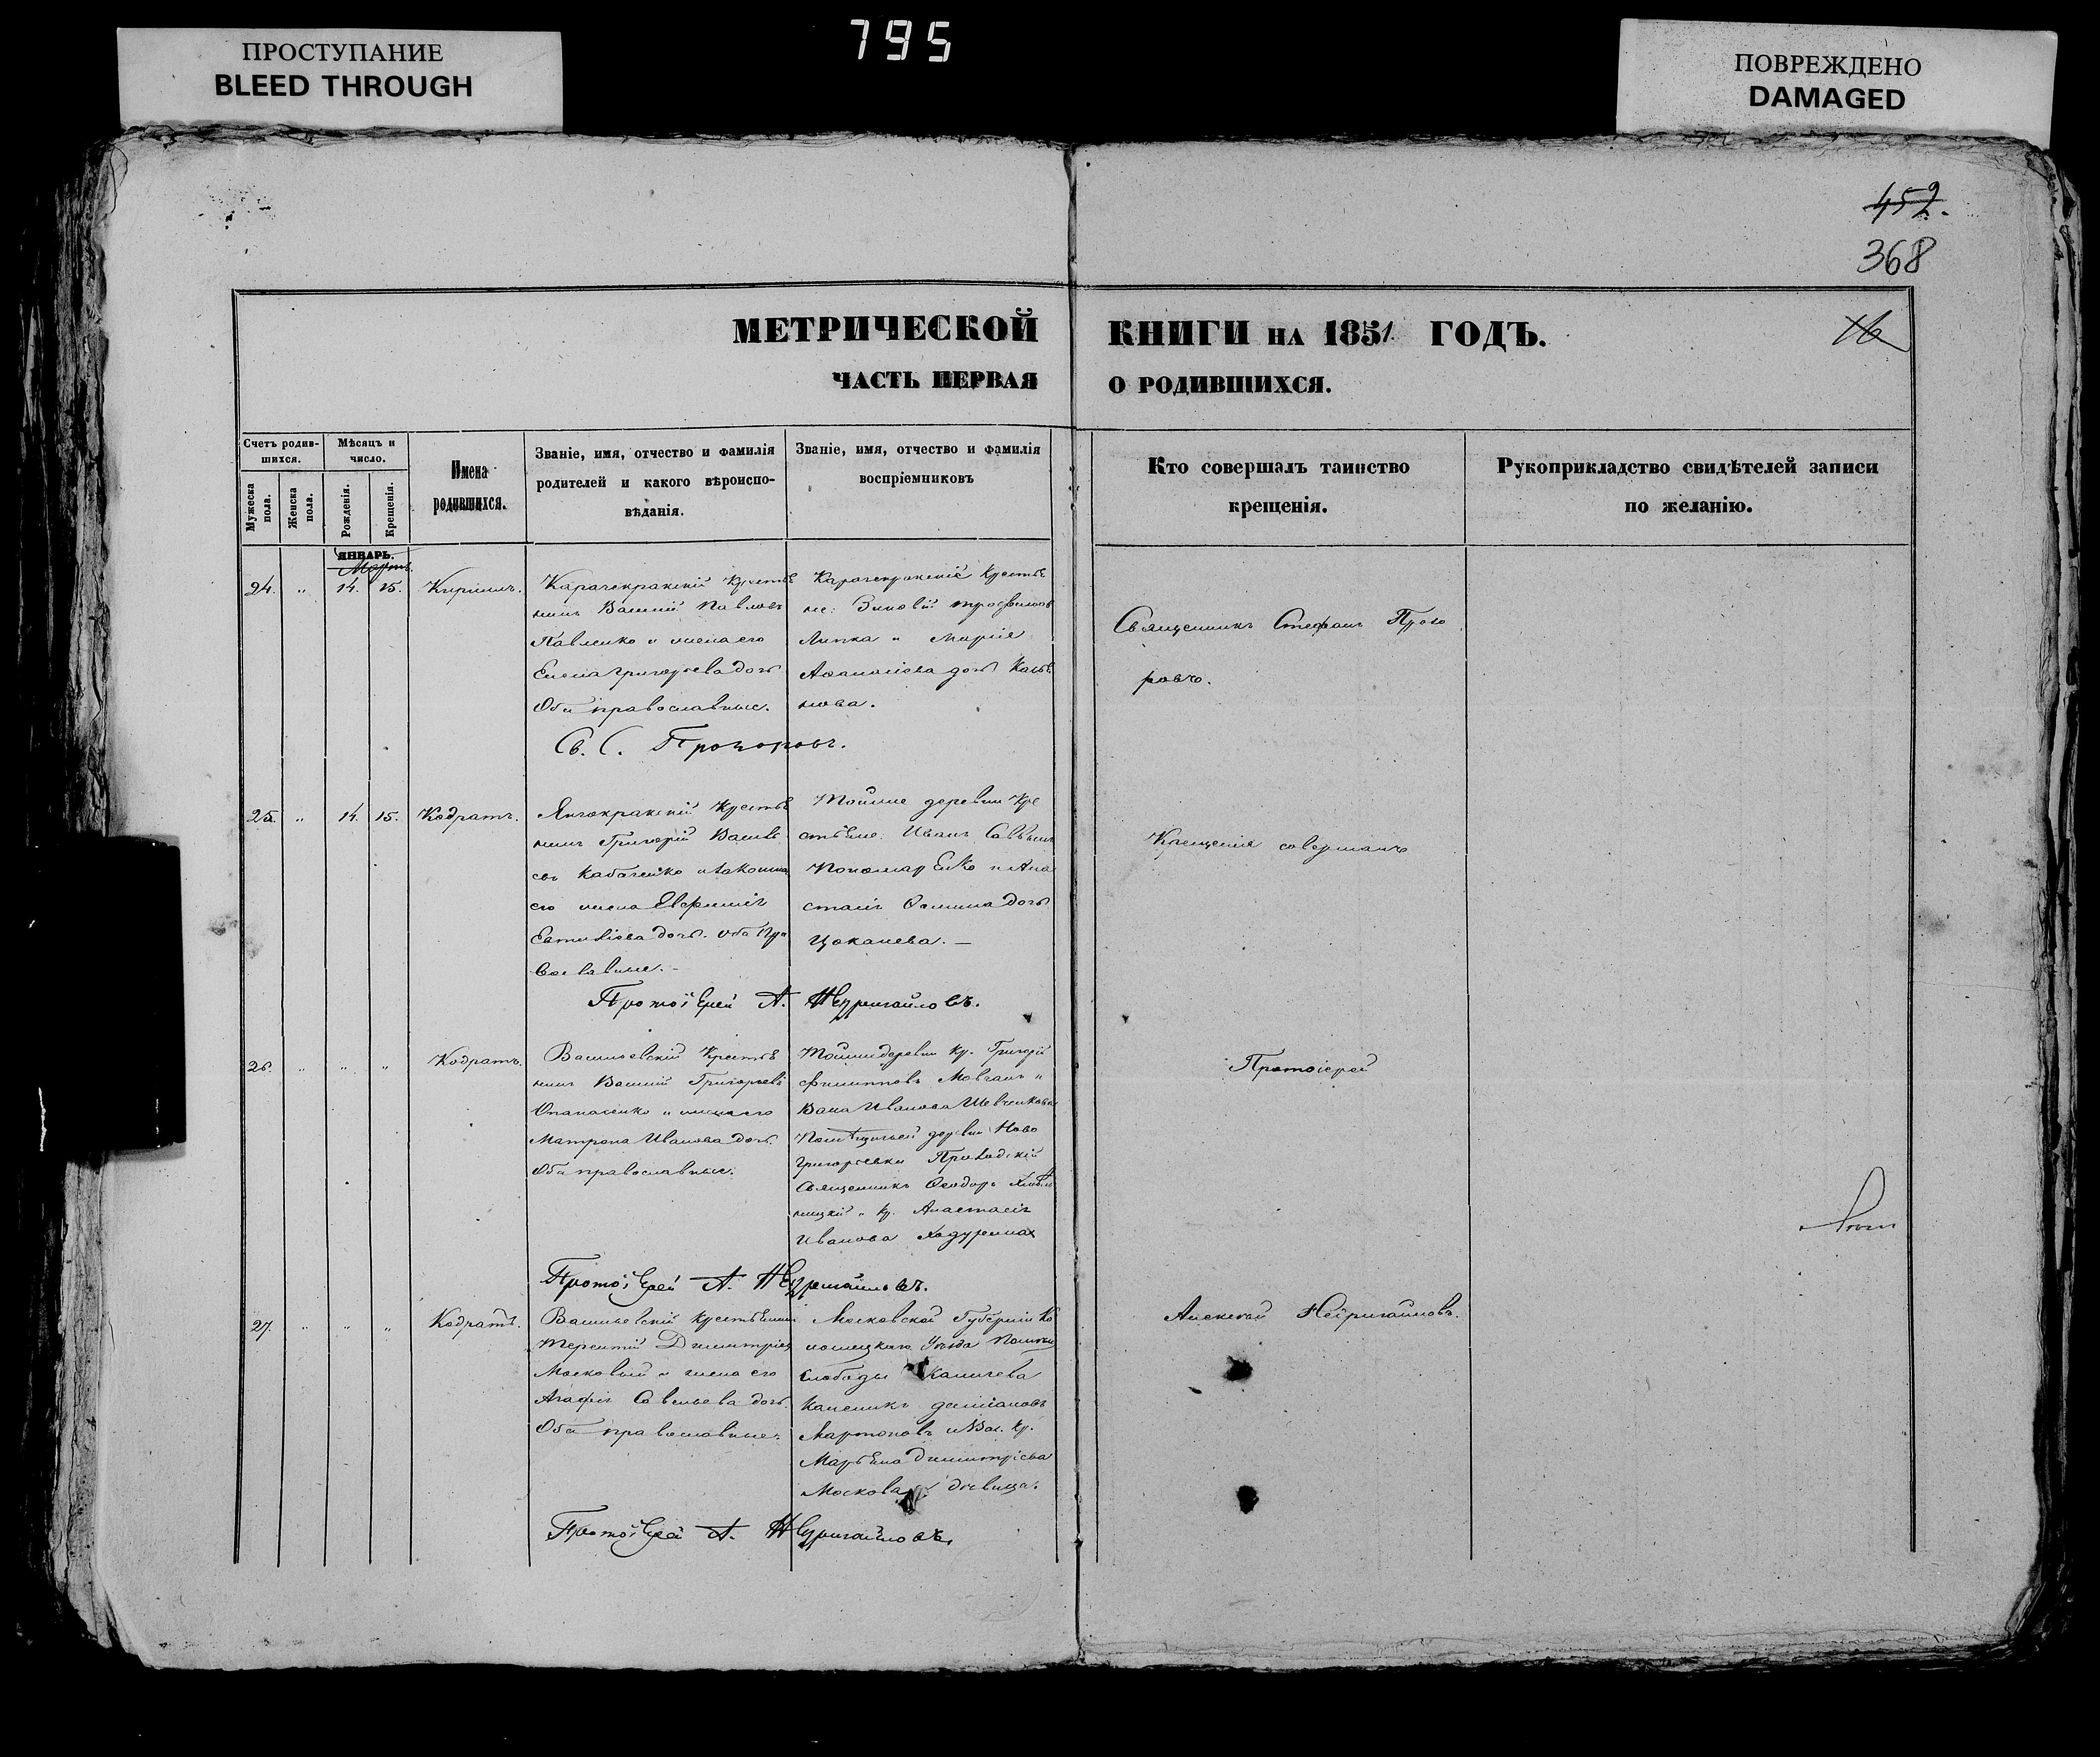 ПРОСТУПАНИЕ
BLEED THROUGH
795
ПОВРЕЖДЕНО
DAMAGED
452.
368
МЕТРИЧЕСКОЙ КНИГИ НА 1851 ГОДЪ.
16
ЧАСТЬ ПЕРВАЯ О РОДИВШИХСЯ.
Счетъ родив-
шихся.
Мужеска
пола.
Женска
пола.
Мѣсяцъ и
число.
Рожденія.
Крещенія.
Имена
родившихся.
Званіе, имя, отчество и фамилія
родителей и какого вѣроиспо-
вѣданія.
Званіе, имя, отчество и фамилія
воспріемниковъ
Кто совершалъ таинство
крещенія.
Рукоприкладство свидѣтелей записи
по желанію.
ЯНВАРЬ.
Мартъ
24. " 14. 15. Кириллъ.
Карачекракскій Крестья
нинъ Василій Павловъ
Павленко и жена его
Елена Григорьева дочь
Оба православные.
Карачекракскіе Крестья
не: Зиновій Трофимовъ
Липка и Марія
Афанасіева дочь
нова.
Священникъ Стефанъ Прохо
ровъ.
Св. С. Прохоровъ.
25. " 14. 15. Кодратъ.
Янчокракскій Крестья
нинъ Григорій Василь
евъ Кабаченко и законная
его жена Евфимія
дочь. оба Пра
вославные.
Тойже деревни Кре
стьяне: Иванъ Саввинъ
Пономаренко и Ана
стасія Фомина дочь
Цоканева.
Крещеніе совершалъ
Протоіерей А. Нейригайловъ.
26. " " " Кодратъ.
Васильевскій Крестья
нинъ Василій Григорьевъ
Опанасенко и жена его
Матрона Иванова дочь.
Оба православные.
Тойже деревни Кр. Григорій
Филипповъ Мовчанъ и
Вассa Иванова Шевченкова
Помѣщичьей деревни Ново
григорьевки Приходскій
Священникъ Феодоръ
ницкій и кр. Анастасія
Иванова
Протоіерей
Протоіерей А. Нейригайловъ.
27. " " " Кодратъ.
Васильевскій крестьянинъ
Терентій Димитріев
Московый и жена его
Агафія Савельева дочь.
Оба православные.
Московской Губерніи Ко
ломицкаго Уѣзда
слободы
каменикъ даміановъ
Мартоновъ и Вас. кр.
Марѣяна Димитріева
Московая девица.
Алексѣй Нейригайловъ.
Протоіерей А. Нейригайловъ.